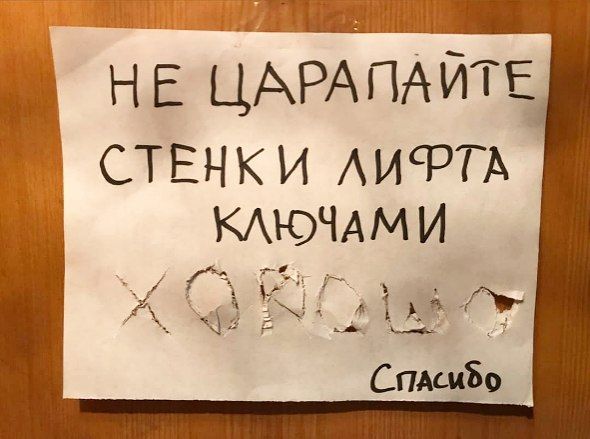 НЕ ЦАРАПАЙТЕ
СТЕНКИ ЛИФТА
КЛЮЧАМИ
ХОРОШО
Спасибо